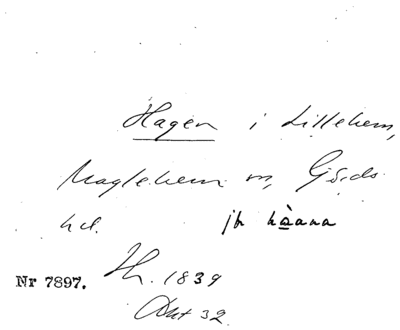 Hagen i Lillehem,
Maglehem sn, Gärds
hd. jfr hàana
Nr 7897. Th. 1839
Akt 32